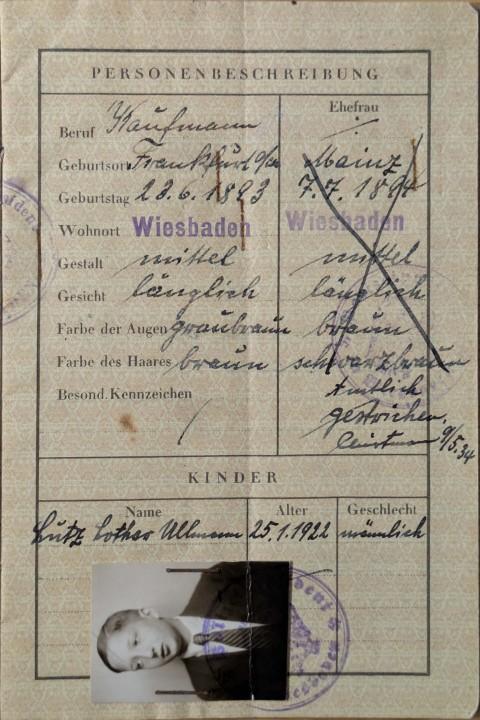 PERSONENBESCHREIBUNG
Ehefrau
Beruf Kaufmann
Geburtsort Frankfurt a/M Mainz
Geburtstag 23.6.1893 7.7.1894
Wohnort Wiesbaden Wiesbaden
Gestalt mittel mittel
Gesicht länglich länglich
Farbe der Augen graubraun braun
Farbe des Haares braun schwarzbraun
Besond. Kennzeichen / Amtlich
gestrichen.
9/5.34
KINDER
Name Alter Geschlecht
Lutz Lothar Ullmann 25.1.1922 männlich